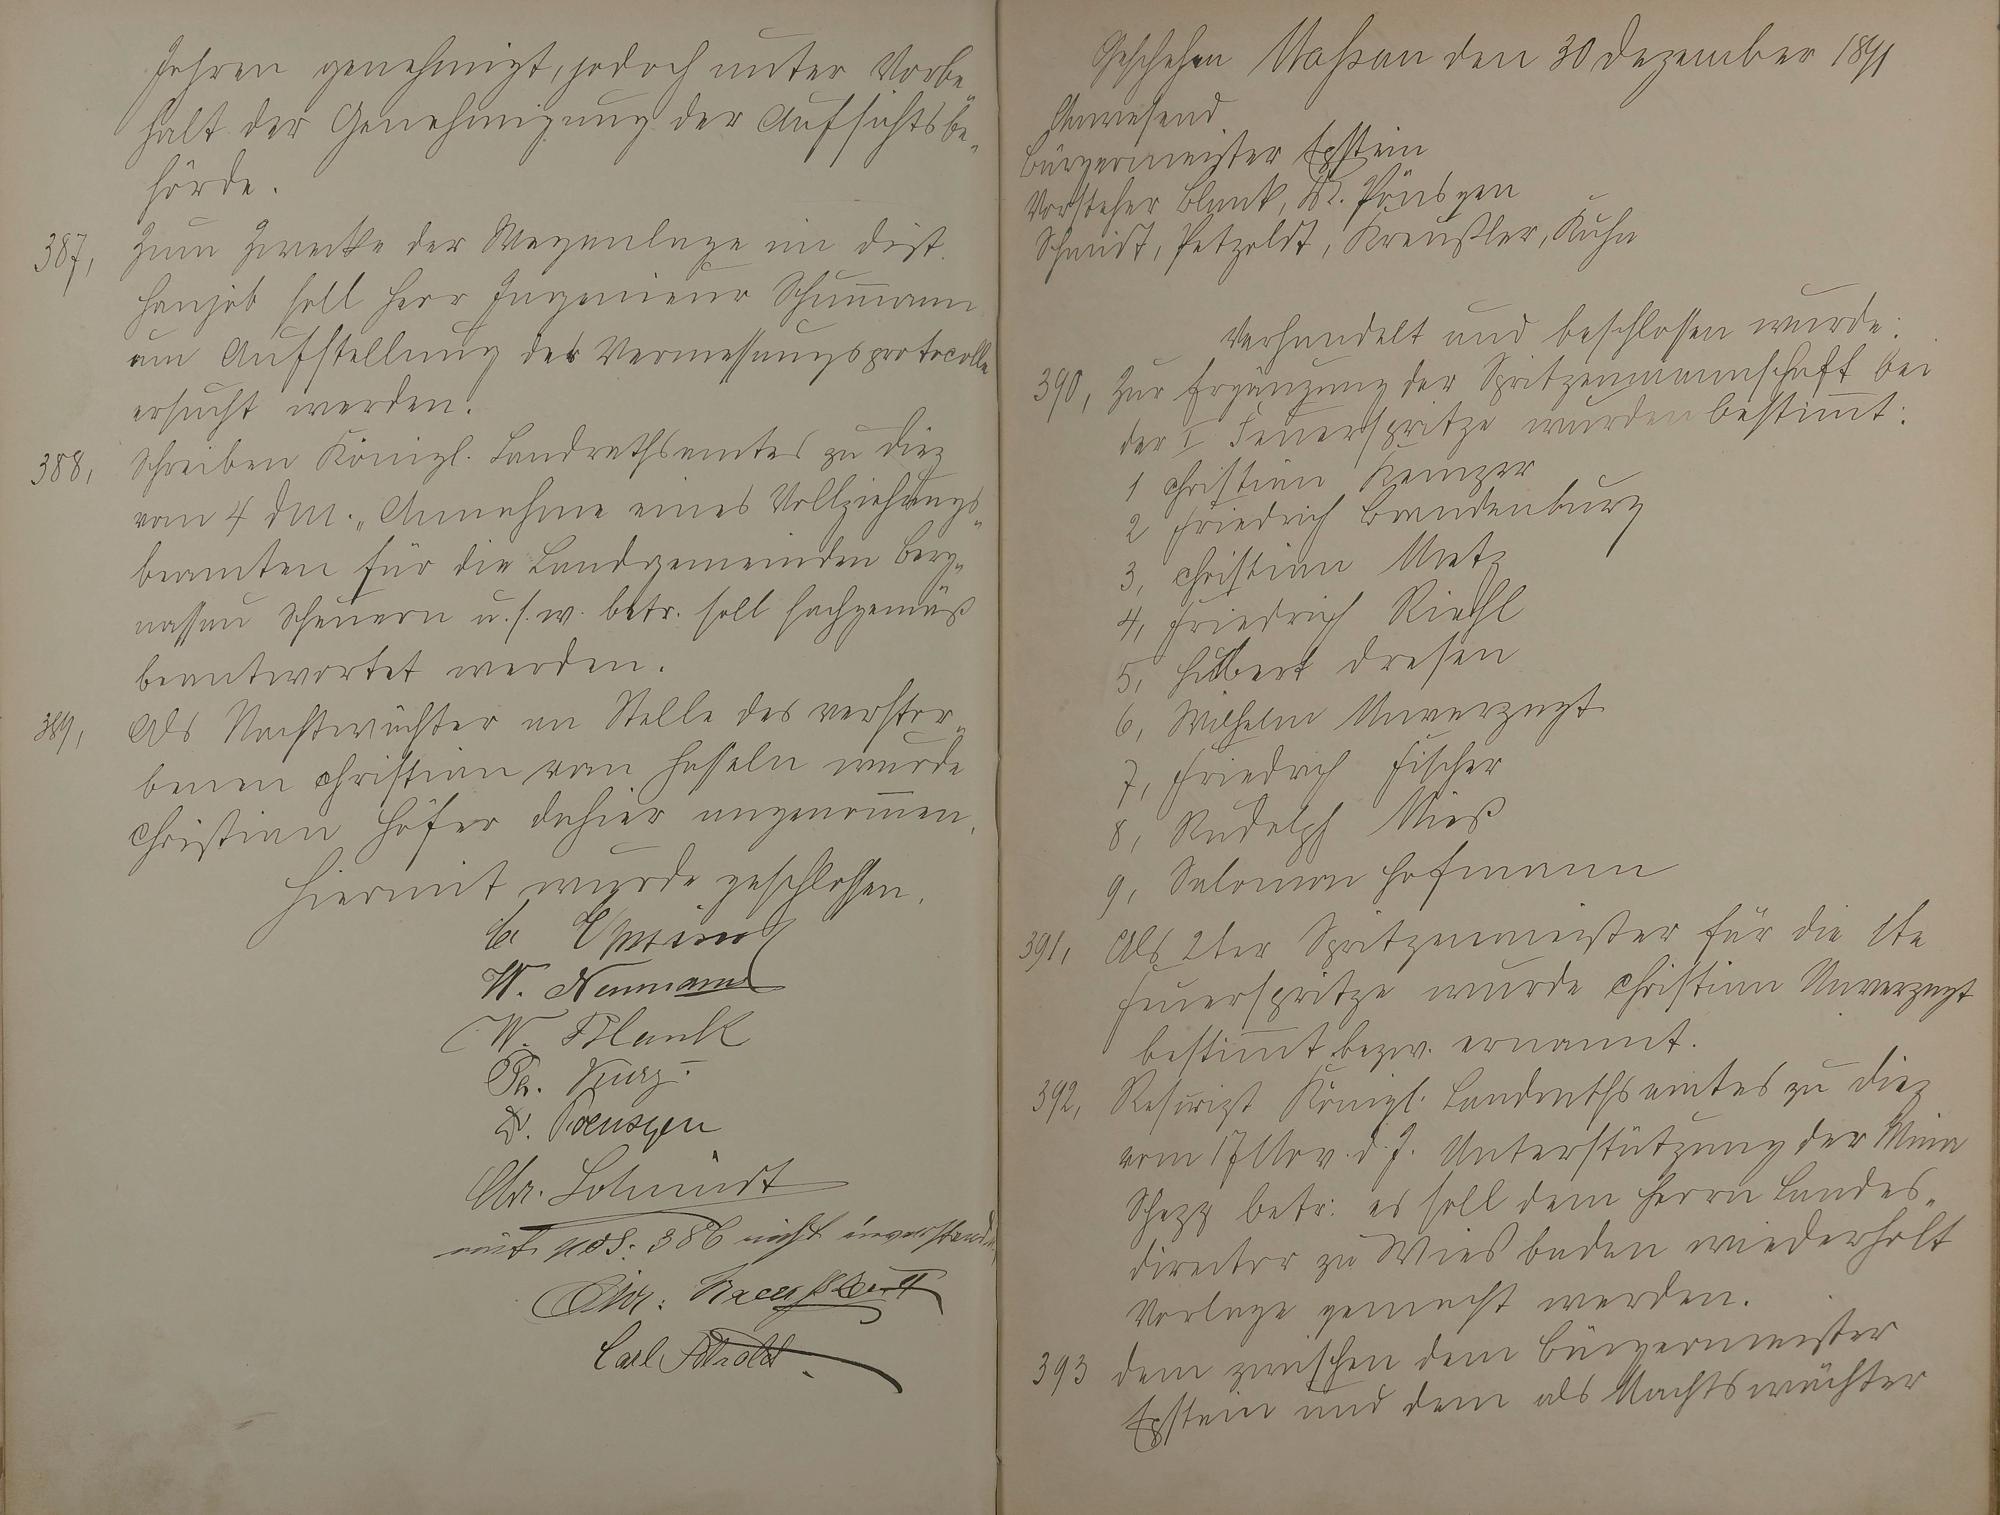 Jahren genehmigt, jedoch unter Vorbe-
halt der Genehmigung der Aufsichtsbe-
hörde.
387, Zum Zwecke der Weganlage im Dist.
Hanjob soll Herr Ingenieur Schum̄ann
um Aufstellung des Vermessungsprotocolls
ersucht werden.
388, Schreiben Königl. Landrathsamtes zu Diez
vom 4 d M. "Annahme eines Vollziehungs-
beamten für die Landgemeinden Berg-
nassau Scheuern u.s.w. betr. soll sachgemäß
beantwortet werden.
389, Als Nachtwächter an Stelle des verstor-
benen Christian von Hasseln wurde
Christian Höfer dahier angenom̄en.
Hiermit wurde geschlossen.
Epstein
W. Neumann
W. Blank
Ph. Kurz
D. Poensgen
Chr. Schmidt
mit pos: 386 nicht
Chr:
Carl Petzoldt
Geschehen Nassau den 30 Dezember 1891
Anwesend
Bürgermeister Epstein
Vorsteher Blank, D. Pönsgen
Schmidt, Petzoldt, Kreußler, Kuhn
Verhandelt und beschlossen wurde:
390, Zur Ergänzung der Spritzenmannschaft bei
der I Feuerspritze wurden bestim̄t:
1 Christian Kemzer
2 Friedrich Brandenburg
3, Christian Metz
4, Friedrich Riehl
5, Hubert Dresen
6, Wilhelm Unverzagt
7, Friedrich Fischer
8, Rudolph Mieß
9, Salomon Hofmann
391, Als 2ter Spritzenmeister für die 1te
Feuerspritze wurde Christian Unverzagt
bestim̄t bezw. ernannt.
392, Königl. Landrathsamtes zu Diez
vom 17 Nov. d. J. Unterstützung der Mina
betr: es soll dem Herrn Landes-
director zu Wiesbaden wiederholt
Vorlage gemacht werden.
393 Dem zwischen dem Bürgermeister
Epstein und dem als Nachtswächter